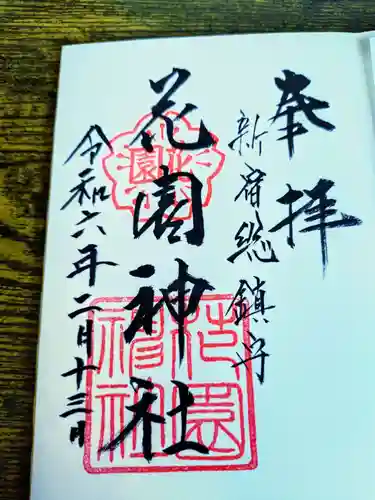 奉拝
新宿總鎮守
花園神社
令和六年二月十三日
花園
花園神社